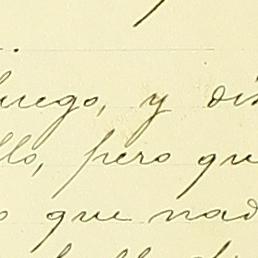 luego, y dis
llo, pero qu
o que nad